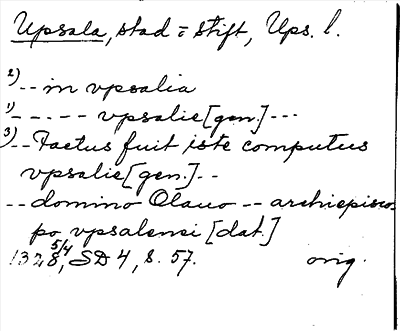 Upsala, stad = stift, Ups. l.
2) -- in vpsalia
1) ----- vpsalie [gen.] ---
3) -- Factus fuit iste computus
vpsalie [gen.] --
-- domino Olauo -- archiepisco-
po vpsalensi [dat.]
1328 5/4, SD 4, s. 57. orig.